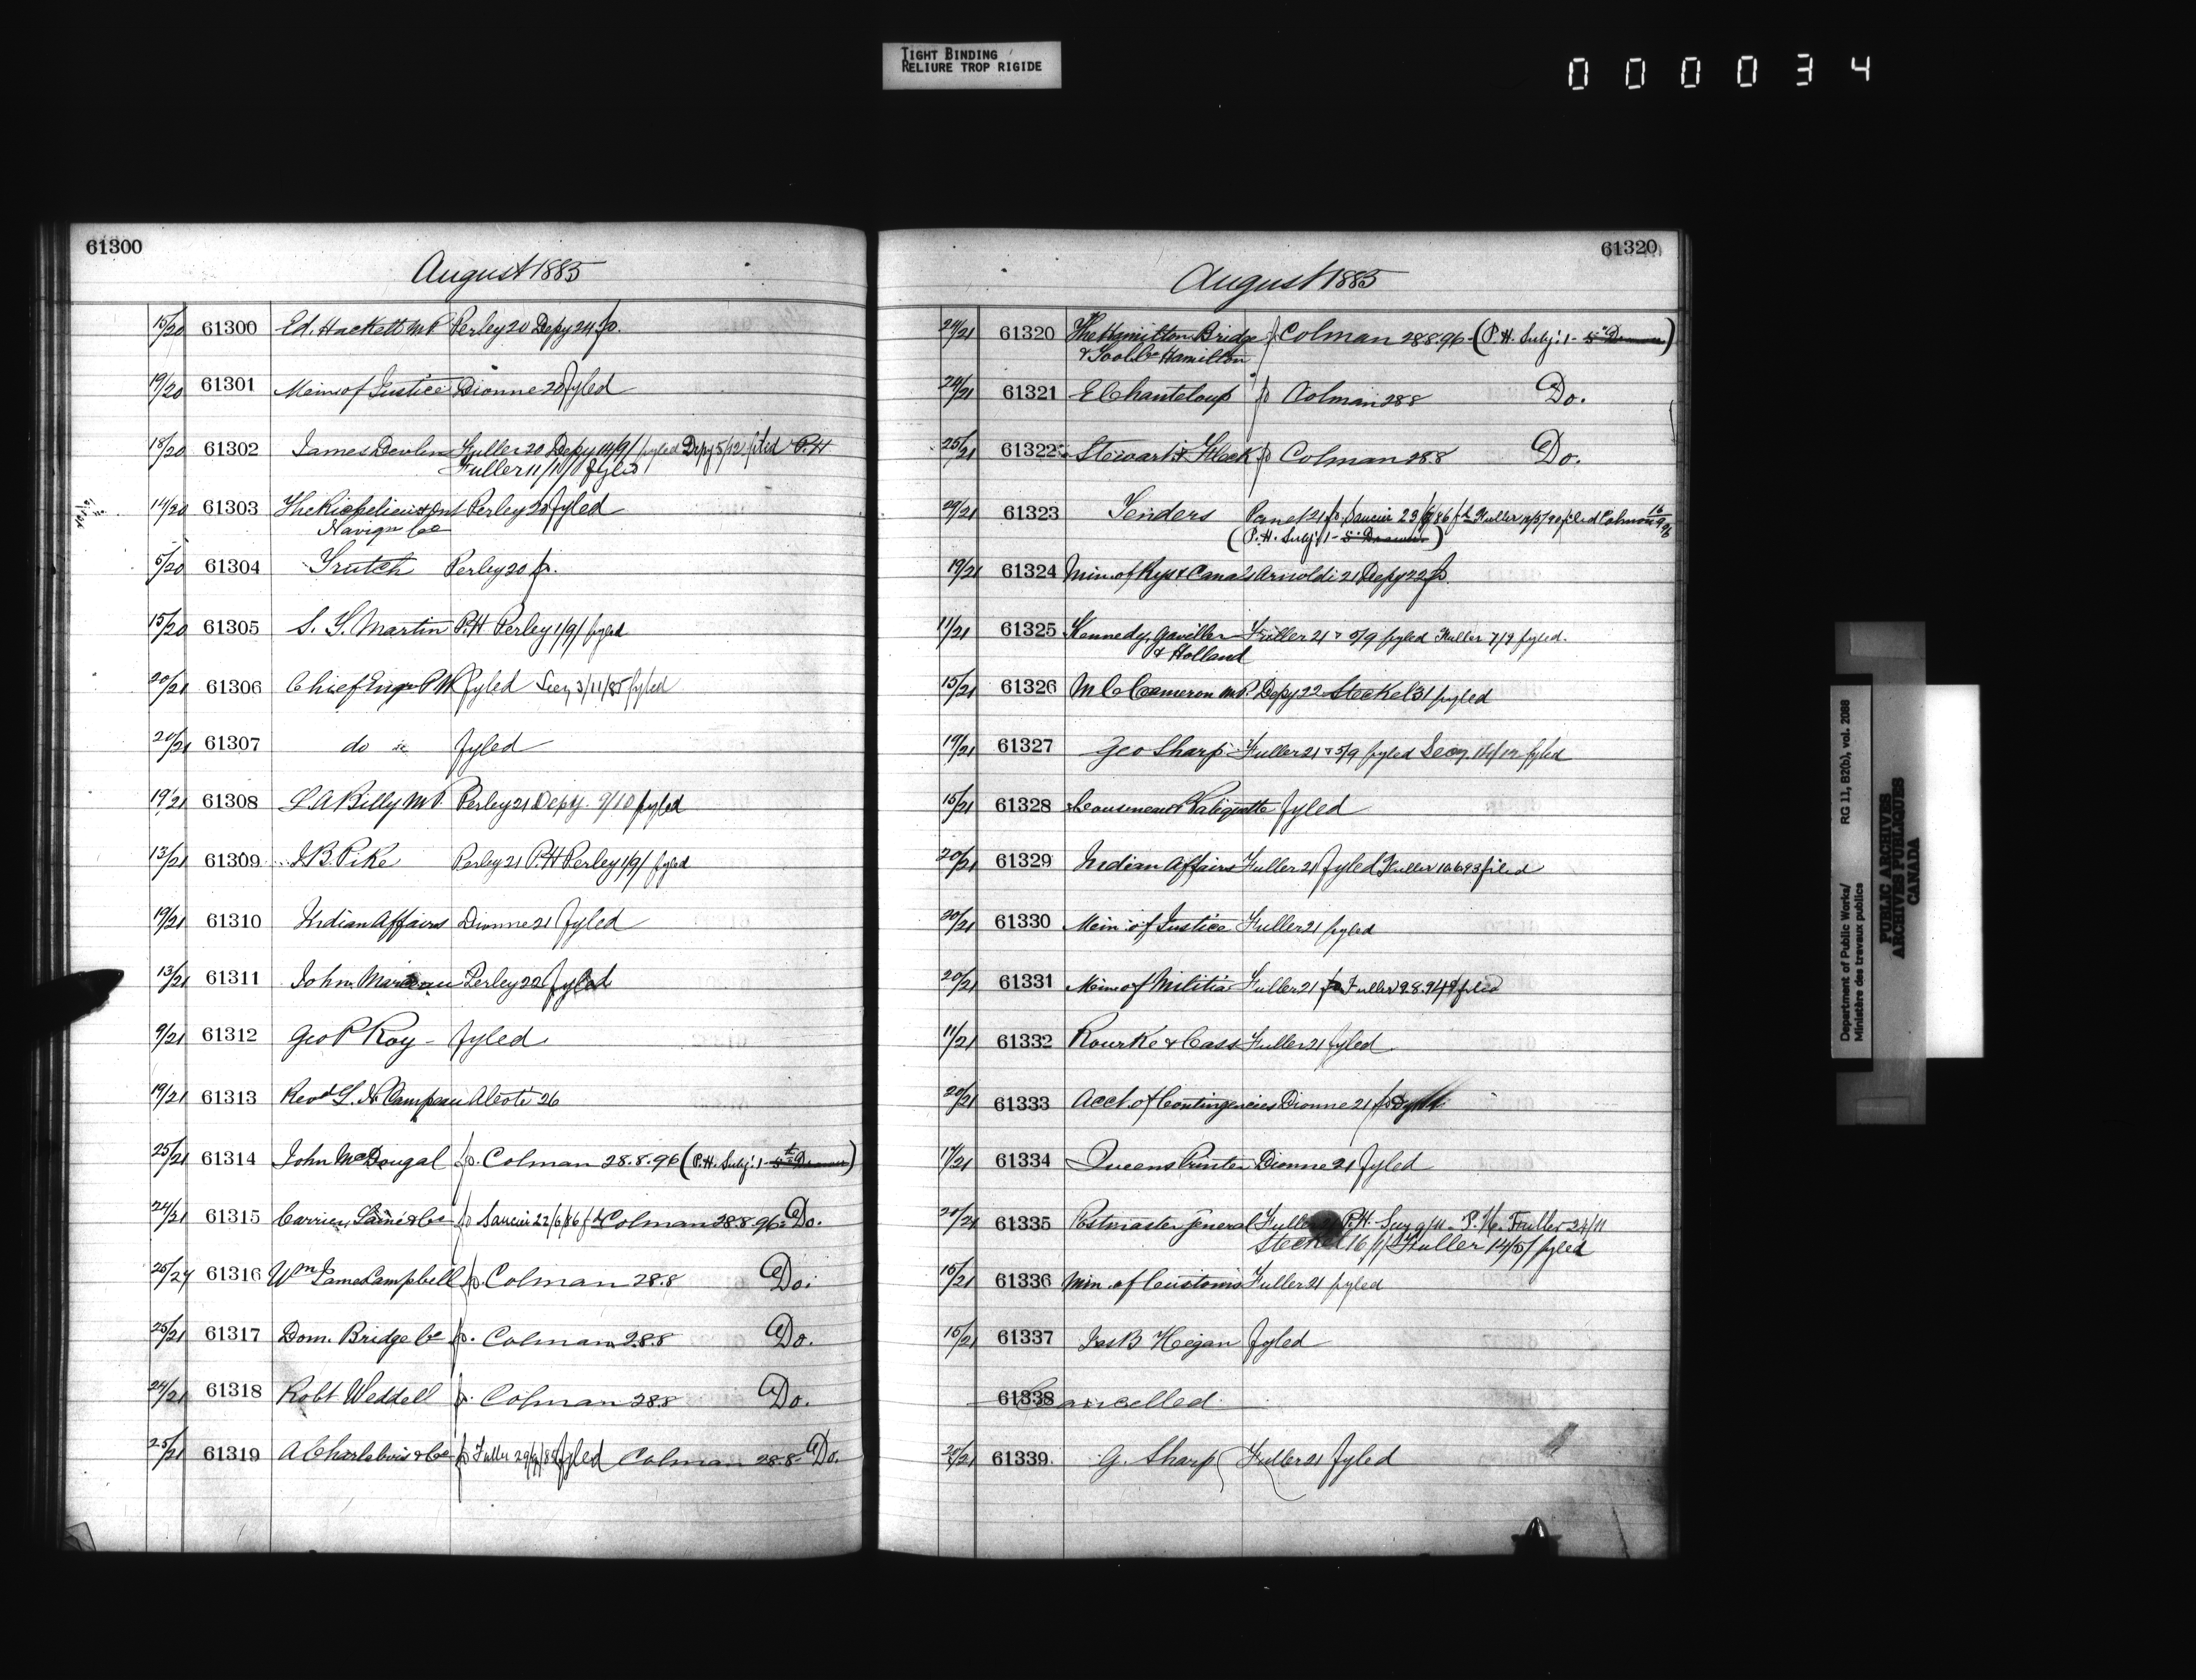 TIGHT BINDING
RELIURE TROP RIGIDE
000034
61300
August 1885
15/20 61300 Ed. Hackett M.P. Perley 20 Depy 24 fo.
19/20 61301 Min of Justice Dionne 20 fyled
18/20 61302 James Devlin Fuller 20 Depy 14/9/ fyled Depy 5/12/ filed P.H
Fuller 11/11/ fyled
14/20 61303 The Richelieu & Ont Perley 20 fyled
Navign Co
5/20 61304 Trutch Perley 20 fo.
15/20 61305 S. Y. Martin P.H Perley 1/9/ fyled
20/21 61306 Chief Engr P W fyled Secy 3/11/85 fyled
20/21 61307 do fyled
19/21 61308 L.A Billy M.P. Perley 21 Depy. 9/10 fyled
13/21 61309 J.B. Pike Perley 21 P.H Perley 1/9/ fyled
19/21 61310 Indian Affairs Dionne 21 fyled
13/21 61311 John Perley 22 fyled
9/21 61312 Geo P Roy - fyled
19/21 61313 Revd Campeau 26
25/21 61314 John McDougal fo. Colman 28.8.96 (P.H. Subj: 1 - 5th Drawer)
24/21 61315 Carrier, Lainé & Co fo Saucier 22/6/86 Colman 28.8.96 Do.
25/27 61316 Wm James Campbell fo. Colman 28.8 Do.
25/21 61317 Dom. Bridge Co fo. Colman 28.8 Do.
24/21 61318 Robt Weddell fo. Colman 28.8 Do.
25/21 61319 A Charlebois & Co fo Fuller fyled Colman 28.8 Do.
61320
August 1885
24/21 61320 The Hamilton Bridge fo. Colman 28.8.96 - (P.H. Subj: 1 - 5th Drawer)
& Tool Co Hamilton
24/21 61321 E Chanteloup fo Colman 28.8 Do.
25/21 61322 Stewart & Fleck fo Colman 28.8 Do.
24/21 61323 Tenders 21 fo Saucier Fuller filed Colman
(P.H. Subj: 1 - 5th Drawer)
19/21 61324 Min. of Rys & Canals Arnoldi 21 Depy 22 fo.
11/21 61325 Kennedy, Gaviller Fuller 21 & 5/9 fyled Fuller 7/9 fyled.
& Holland
15/21 61326 M C Cameron M.P. Depy 22 Steckel 31 fyled
19/21 61327 Geo Sharp Fuller 21 & 5/9 fyled Secy. fyled
15/21 61328 Cousineau & fyled
20/21 61329 Indian Affairs Fuller 21 fyled Fuller filed
20/21 61330 Min of Justice Fuller 21 fyled
20/21 61331 Min of Militia Fuller 21 fo Fuller 9.8.94 filed
11/21 61332 Rourke & Cass Fuller 21 fyled
20/21 61333 Acct. of Contingencies Dionne 21 fo
17/21 61334 Queens Printer Dionne 21 fyled
20/21 61335 Postmaster General Fuller P.H. Secy 9/11 - P.H. Fuller 24/11
Steckel 16/1/ Fuller 14/5/ fyled
15/21 61336 Min. of Customs Fuller 21 fyled
15/21 61337 Jas B Hegan fyled
61338 Cancelled
20/21 61339 G. Sharp Fuller 21 fyled
Department of Public Works/ RG 11, B2(b), vol. 2088
Ministère des travaux publics
PUBLIC ARCHIVES
ARCHIVES PUBLIQUES
CANADA